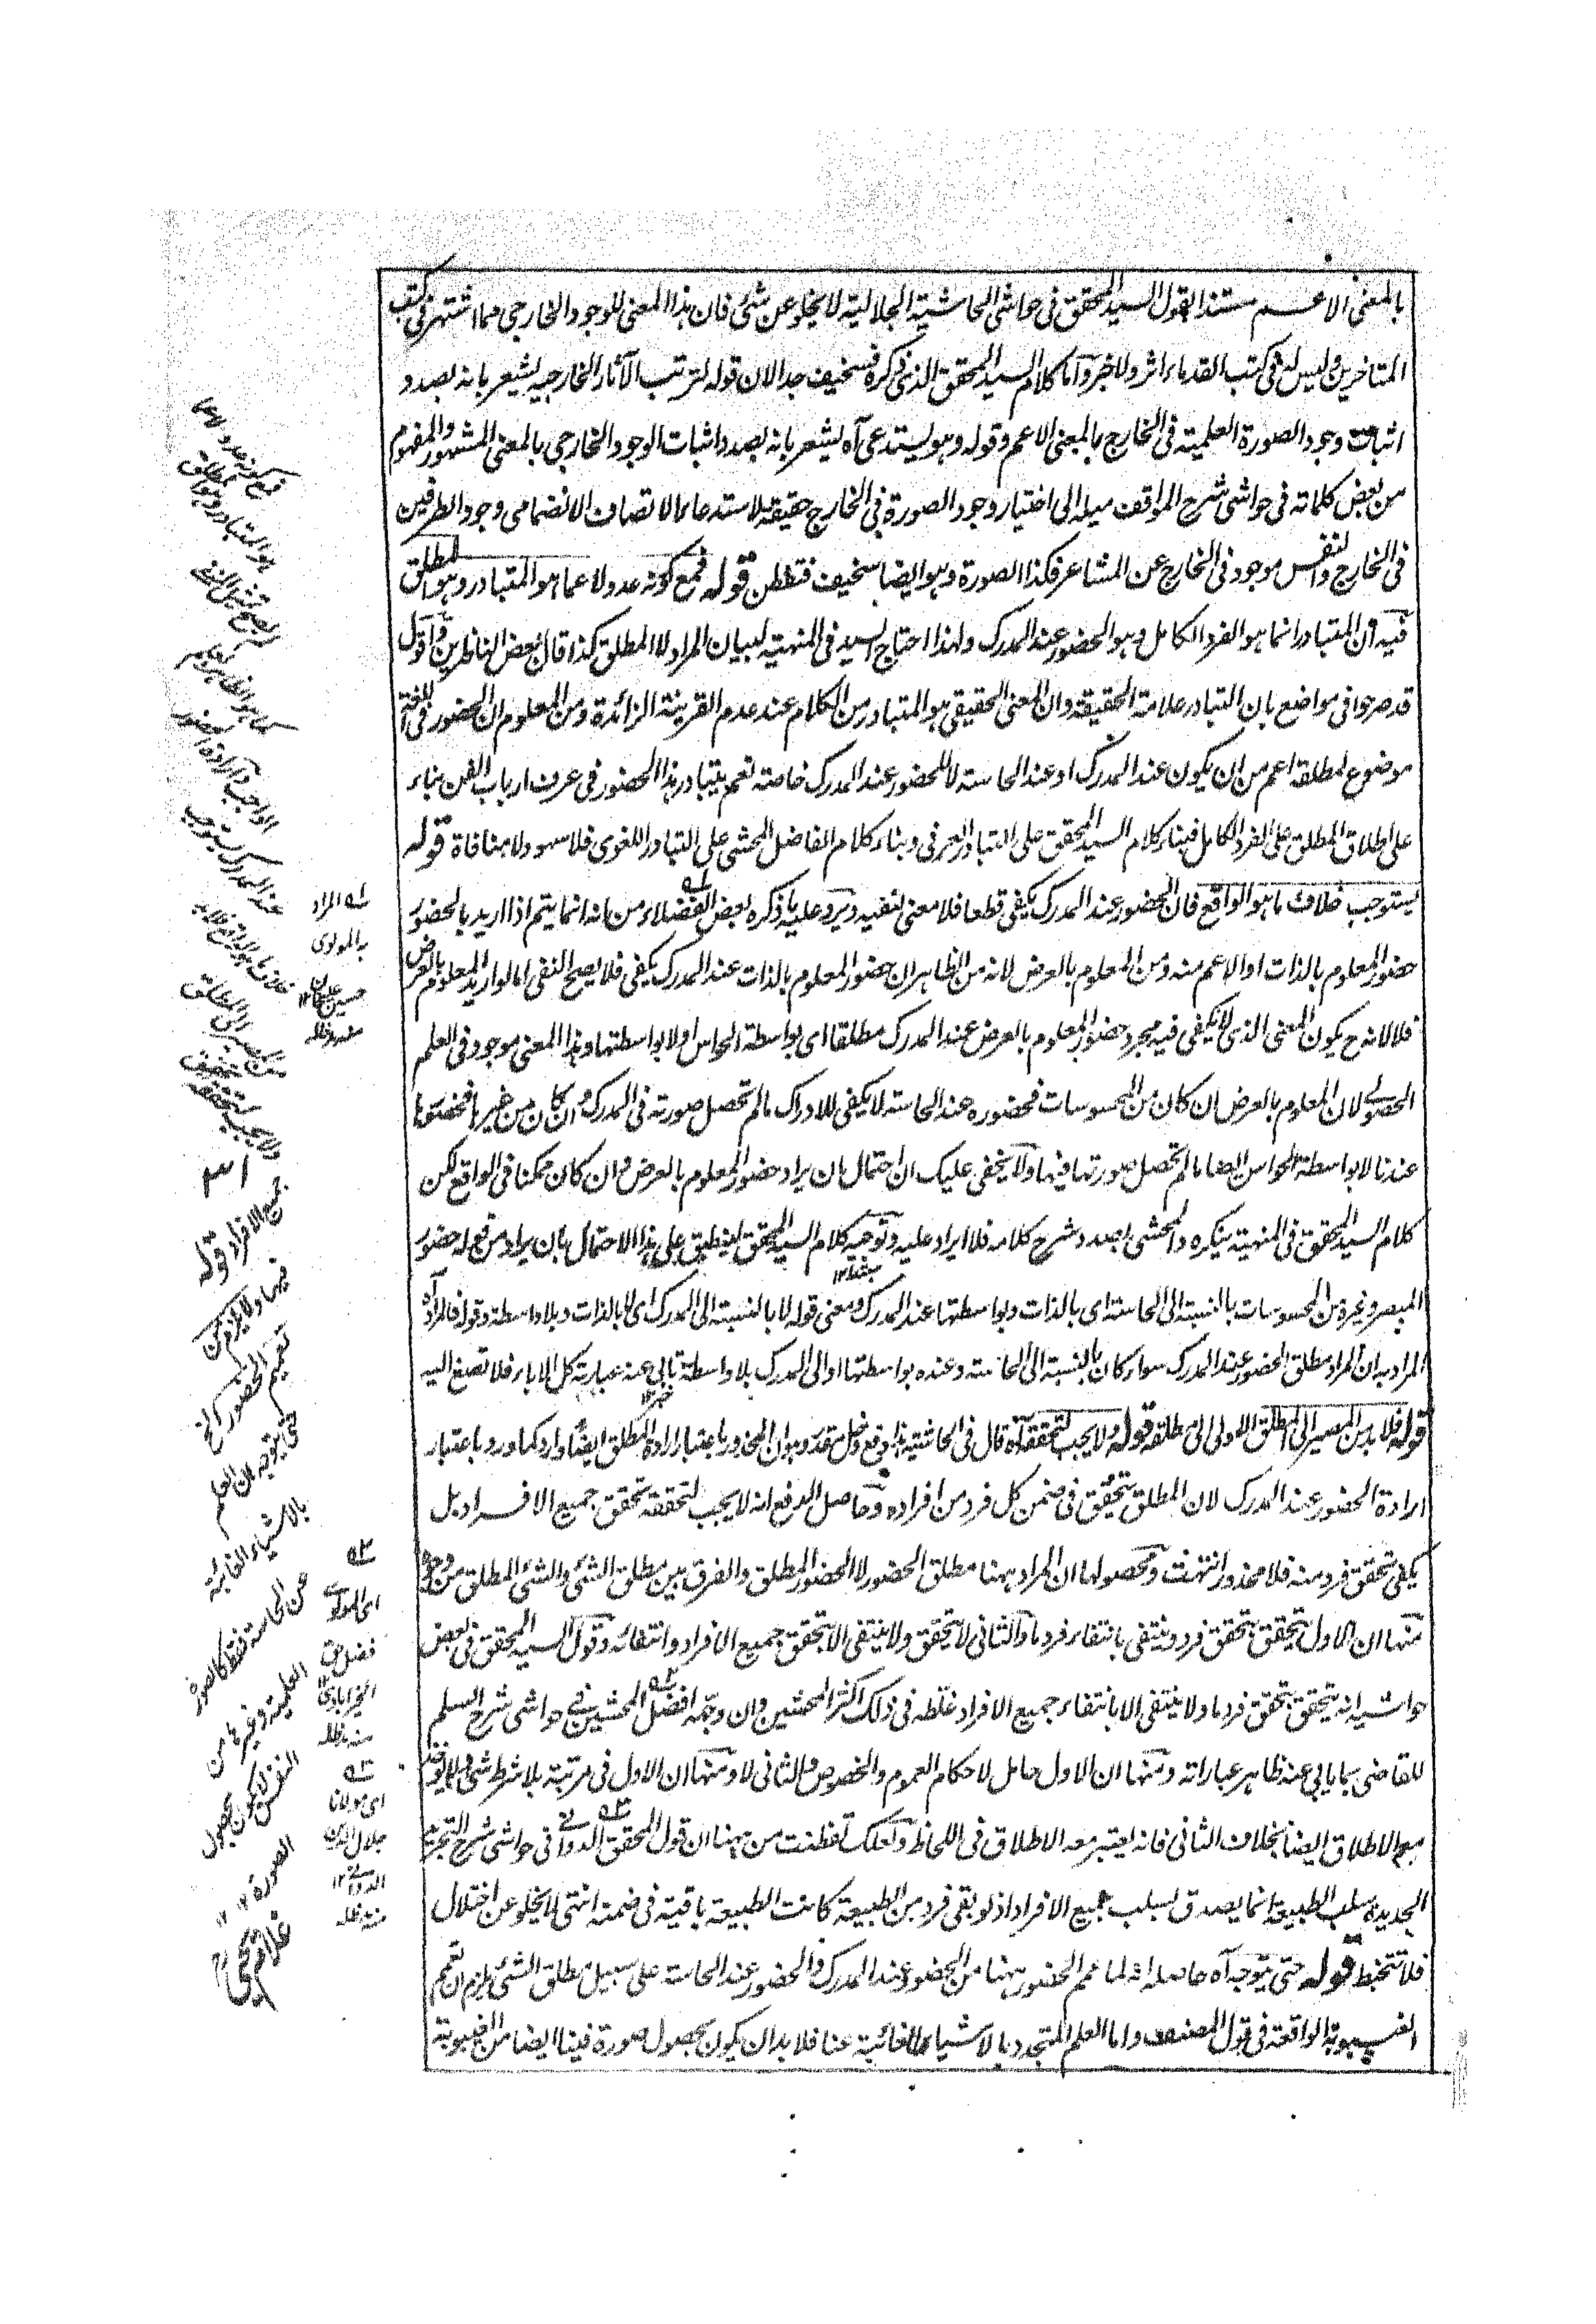 بالمعنى الاعم مستندا بقول السيد المحقق فى حواشى الحاشية الجلالية لا يخلو عن شئ فان هذا المعنى للوجود الخارجى مما اشتهر فى كتب
المتاخرين وليس له فى كتب القدماء اثر ولا خبر واما كلام السيد المحقق الذى ذكره فسخيف جدا لان قوله لترتب الآثار الخارجية يشعر بانه بصدد
اثبات وجود الصورة العلمية فى الخارج بالمعنى الاعم وقوله وهو يستدعى آه يشعر بانه بصدد اثبات الوجود الخارجى بالمعنى المشهور والمفهوم
من بعض كلماته فى حواشى شرح المواقف ميله الى اختيار وجود الصورة فى الخارج حقيقة لاستدعاء الاتصاف الانضمامى وجود الطرفين
فى الخارج والنفس موجود فى الخارج عن المشاعر فكذا الصورة وهو ايضا سخيف فتفطن قوله فمع كونه عدولا عما هو المتبادر وهو المطلق
فيه ان المتبادر انما هو الفرد الكامل وهو الحضور عند المدرك ولهذا احتاج السيد فى المنهية لبيان المراد لا المطلق كذا قال بعض الناظرين واقول
قد صرحوا فى مواضع بان التبادر علامة الحقيقة وان المعنى الحقيقى هو المتبادر من الكلام عند عدم القرينة الزائدة ومن المعلوم ان الحضور فى اللغة
موضوع لمطلقه اعم من ان يكون عند المدرك او عند الحاسة لا للحضور عند المدرك خاصة نعم يتبادر هذا الحضور فى عرف ارباب الفن بناء
على اطلاق المطلق على الفرد الكامل فبناء كلام السيد المحقق على التبادر العرفى وبناء كلام الفاضل المحشى على التبادر اللغوى فلا سهو ولا منافاة قوله
يستوجب خلاف ما هو الواقع فان الحضور عند المدرك يكفى قطعا فلا معنى لنفيه ويرد عليه ما ذكره بعض الفضلاء من انه انما يتم اذا اريد بالحضور
حضور المعلوم بالذات او الاعم منه ومن المعلوم بالعرض لانه من الظاهر ان حضور المعلوم بالذات عند المدرك يكفى فلا يصح النفى اما لو اريد المعلوم بالعرض
فلا لانه ح يكون المعنى الذى لا يكفى فيه مجرد حضور المعلوم بالعرض عند المدرك مطلقا اى بواسطة الحواس او لا بواسطتها وهذا المعنى موجود فى العلم
الحصولى لان المعلوم بالعرض ان كان من المحسوسات فحضوره عند الحاسة لا يكفى للادراك ما لم تحصل صورته فى المدرك وان كان من غيرها فحضورها
عندنا لا بواسطة الحواس ايضا ما لم تحصل صورتها فيها ولا يخفى عليك ان احتمال ان يراد حضور المعلوم بالعرض وان كان ممكنا فى الواقع لكن
كلام السيد المحقق فى المنهية ينكره والمحشى بصدد شرح كلامه فلا ايراد عليه وتوجيه كلام السيد المحقق لينطبق على هذا الاحتمال بان يراد من قوله حضور
المبصر وغيره من المحسوسات بالنسبة الى الحاسة اى بالذات وبواسطتها عند المدرك ومعنى قوله لا بالنسبة الى المدرك اى لا بالذات وبلا واسطة وقوله فالمراد آه
المراد به ان المراد مطلق الحضور عند المدرك سواء كان بالنسبة الى الحاسة وعنده بواسطتها او الى المدرك بلا واسطة تابى عنه عبارته كل الاباء فلا تصغ اليه
قوله فلا بد من المصير الى المطلق الاولى الى مطلقه قوله ولا يجب لتحققه آه قال فى الحاشية هذا دفع دخل مقدر وهو ان المحذور باعتبار ارادة المطلق ايضا وارد كما ورد باعتبار
ارادة الحضور عند المدرك لان المطلق يتحقق فى ضمن كل فرد من افراده وحاصل الدفع انه لا يجب لتحققه تحقق جميع الافراد بل
يكفى تحقق فرد منه فلا محذور انتهت ومحصولها ان المراد ههنا مطلق الحضور لا الحضور المطلق والفرق بين مطلق الشئ والشئ المطلق من وجوه
منها ان الاول يتحقق بتحقق فرد وينتفى بانتفاء فرد ما والثانى لا يتحقق ولا ينتفى الا بتحقق جميع الافراد وانتفائه وقول السيد المحقق فى بعض
حواشيه انه يتحقق بتحقق فرد ما ولا ينتفى الا بانتفاء جميع الافراد غلطه فى ذلك اكثر المحشين وان وجهه افضل المحشين فى حواشى شرح السلم
للقاضى بما يابى عنه ظاهر عباراته ومنها ان الاول حامل لاحكام العموم والخصوص والثانى لا ومنها ان الاول فى مرتبة بلا شرط شئ ولا يؤخذ
مع الاطلاق ايضا بخلاف الثانى فانه يعتبر معه الاطلاق فى اللحاظ ولعلك تفطنت من ههنا ان قول المحقق الدوانى فى حواشى شرح التجريد
الجديدة سلب الطبيعة انما يصدق بسلب جميع الافراد اذ لو بقى فرد من الطبيعة كانت الطبيعة باقية فى ضمنه انتهى لا يخلو عن اختلال
فلا تتخبط قوله حتى يتوجه آه حاصله انه لما عمم الحضور ههنا من الحضور عند المدرك والحضور عند الحاسة على سبيل مطلق الشئ يلزم ان تعمم
الغيبوبة الواقعة فى قول المصنف واما العلم المتجدد بالاشياء الغائبة عنا فلا بد ان يكون بحصول صورة فينا ايضا من الغيبوبة
فمع كونه عدولا عما
هو المتبادر وهو المطلق
كما هو الظاهر
الواجب وارادة الحضور
عند المدرك يستوجب
خلاف ما هو الواقع فلا بد
من المصير الى المطلق
ولا يجب لتحققه تحقق
جميع الافراد قوله
فيها ولا يلزم من
تعميم الحضور الخ
حتى يتوجه ان العلم
بالاشياء الغائبة
عن الحاسة فقط كالصورة
العلمية وغيرها من
النفس لا يكون بحصول
الصورة ١٢
غلام يحيى
له المراد
به المولوى
منه مد ظله
اى المولوى
فضل حق
الخيرابادى
منه مد ظله
اى مولانا
جلال الدين
الدوانى ١٢
منه مد ظله